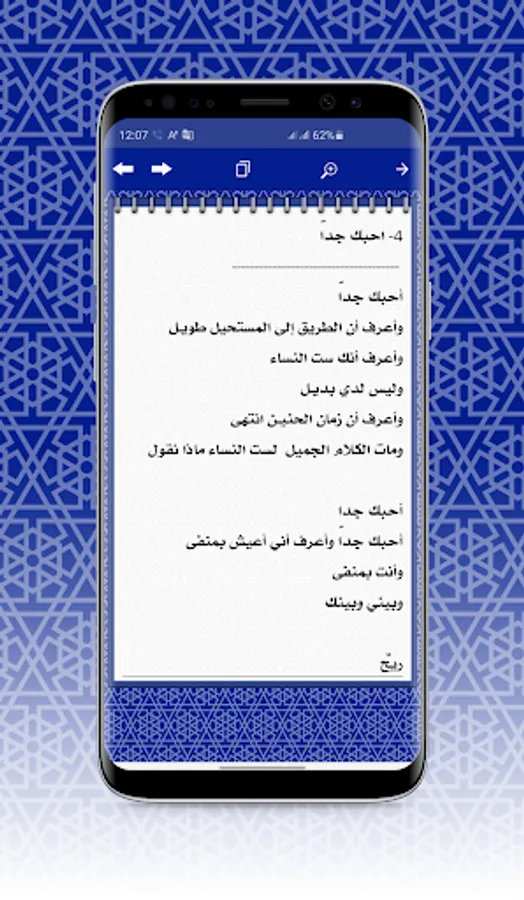 12:07
62%
4- احبك جداً
أحبك جداً
وأعرف أن الطريق إلى المستحيل طويل
وأعرف أنك ست النساء
وليس لدي بديل
وأعرف أن زمان الحنين انتهى
ومات الكلام الجميل لست النساء ماذا نقول
أحبك جدا
أحبك جداً وأعرف أني أعيش بمنفى
وأنت بمنفى
وبيني وبينك
ريحٌ